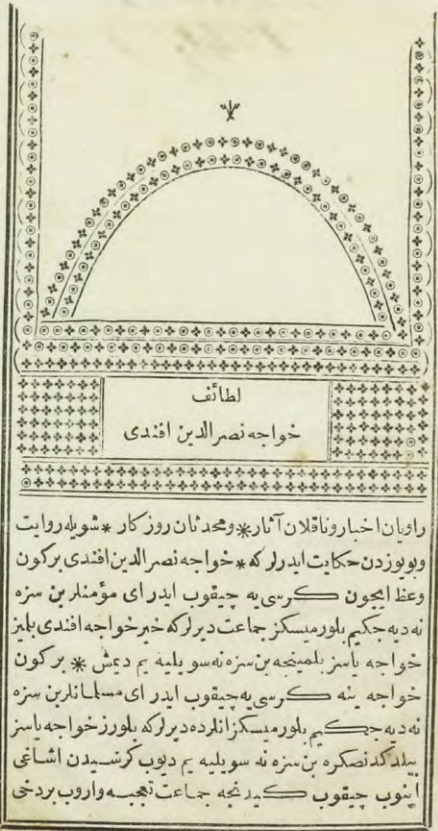 لطائف
خواجه نصر الدين افندى
راويان اخبار و ناقلان آثار * و محدثان روزكار * شويله روايت
و بو يوزدن حكايت ايدرلر كه * خواجه نصر الدين افندى بر كون
وعظ ايچون كرسى يه چيقوب ايدر اى مؤمنلر بن سزه
نه ديه جكيم بلورميسكز جماعت ديرلر كه خير خواجه افندى بلميز
خواجه يا سز بلمينجه بن سزه نه سويليه يم ديمش * بر كون
خواجه ينه كرسى يه چيقوب ايدر اى مسلمانلر بن سزه
نه ديه جكيم بلورميسكز انلرده ديرلر كه بلورز خواجه يا سز
بيلدكدنصكره بن سزه نه سويليه يم ديوب كرسيدن اشاغى
اينوب چيقوب كيدنجه جماعت تعجبه واروب بردخى